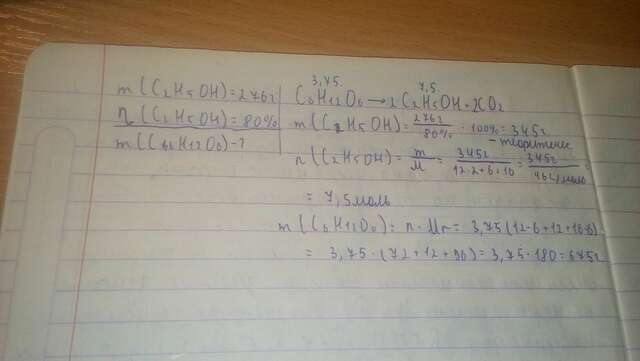 m(C₂H₅OH)=276г
η(C₂H₅OH)=80%
m(C₆H₁₂O₆)-?
3,75. 7,5
C₆H₁₂O₆→2C₂H₅OH+2CO₂
m(C₂H₅OH)=276г/80%·100%=345г
n(C₂H₅OH)=m/M=345г/12·2+6+16=345г/46г/моль=
=7,5моль
m(C₆H₁₂O₆)=n·Mr=3,75(12·6+12+16·6)
=3,75·(72+12+96)=3,75·180=675г